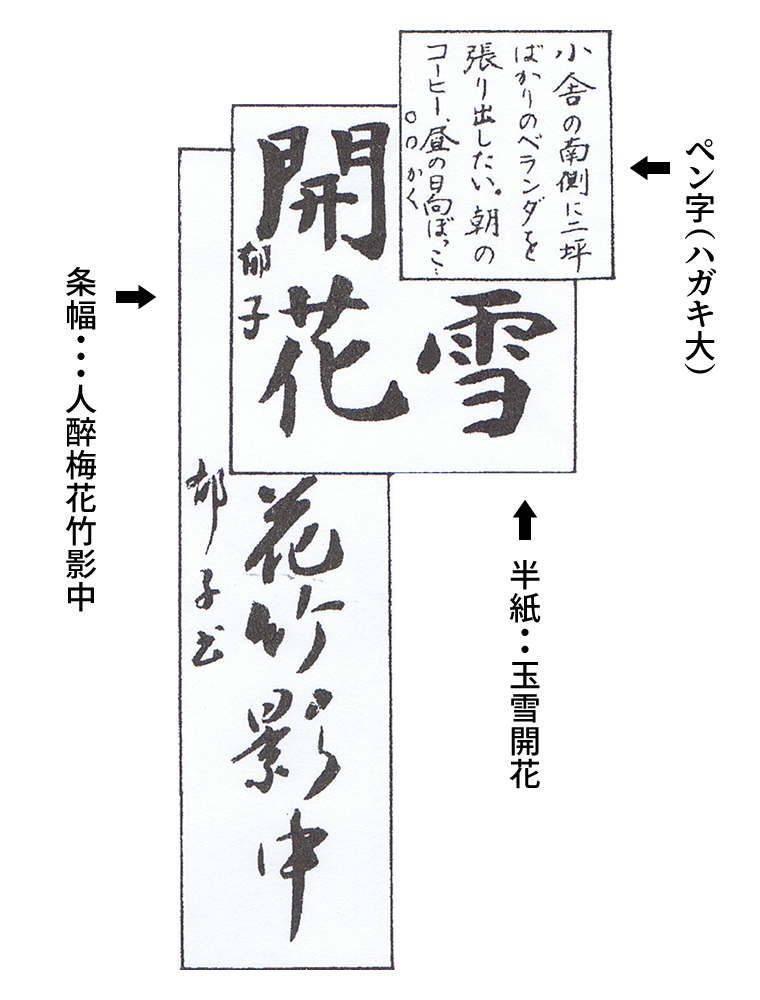 ペン字（ハガキ大）
小舎の南側に二坪
ばかりのベランダをと
張り出したい。朝の
コーヒー、昼の日向ぼっこ…
○○かく
雪
開花
郁子
半紙‥玉雪開花
花竹影中
郁子書
条幅…人醉梅花竹影中